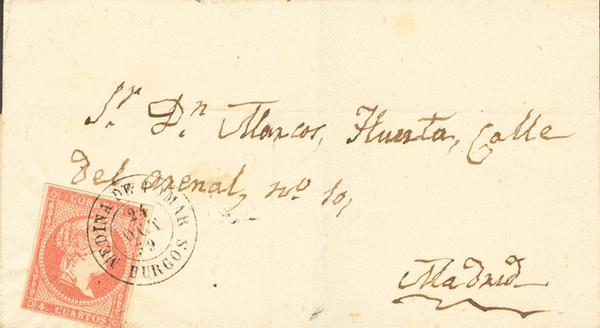 Sr Dn Marcos, Huerta, Calle
Del arenal, no 10,
Madrid
MEDINA DE POMAR
24
OCT
59
BURGOS
CORREOS
4 CUARTOS